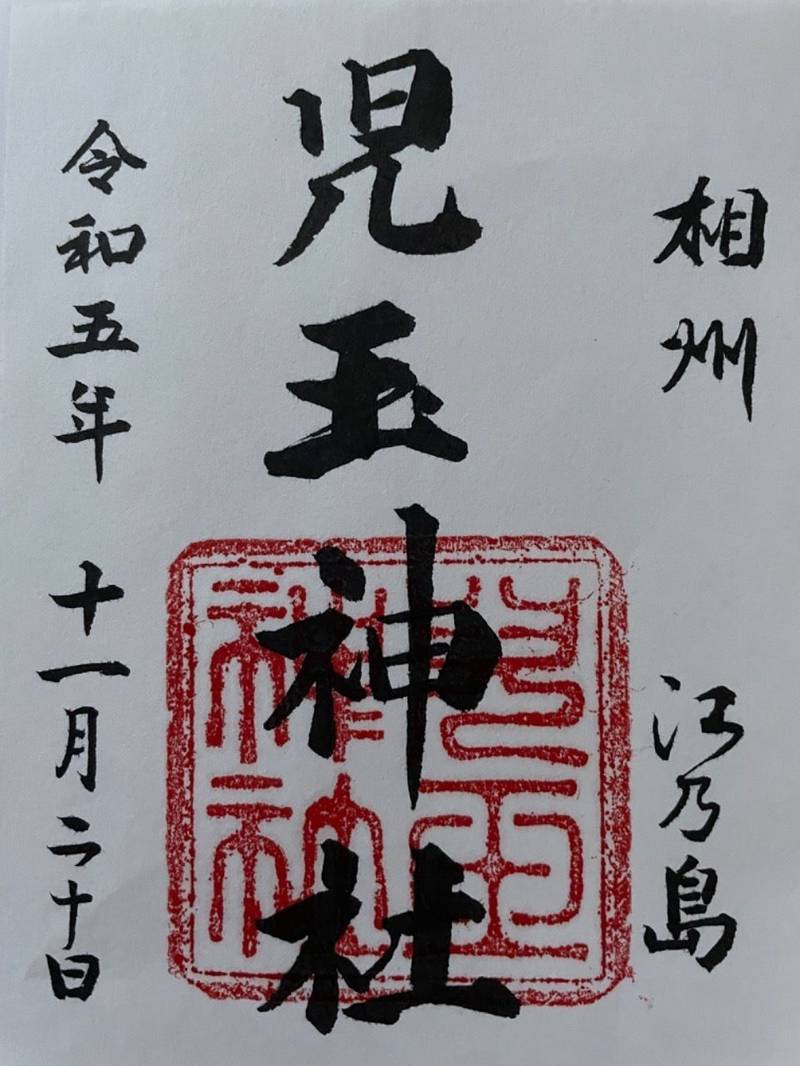 相州 江乃島
児玉神社
令和五年 十一月二十日